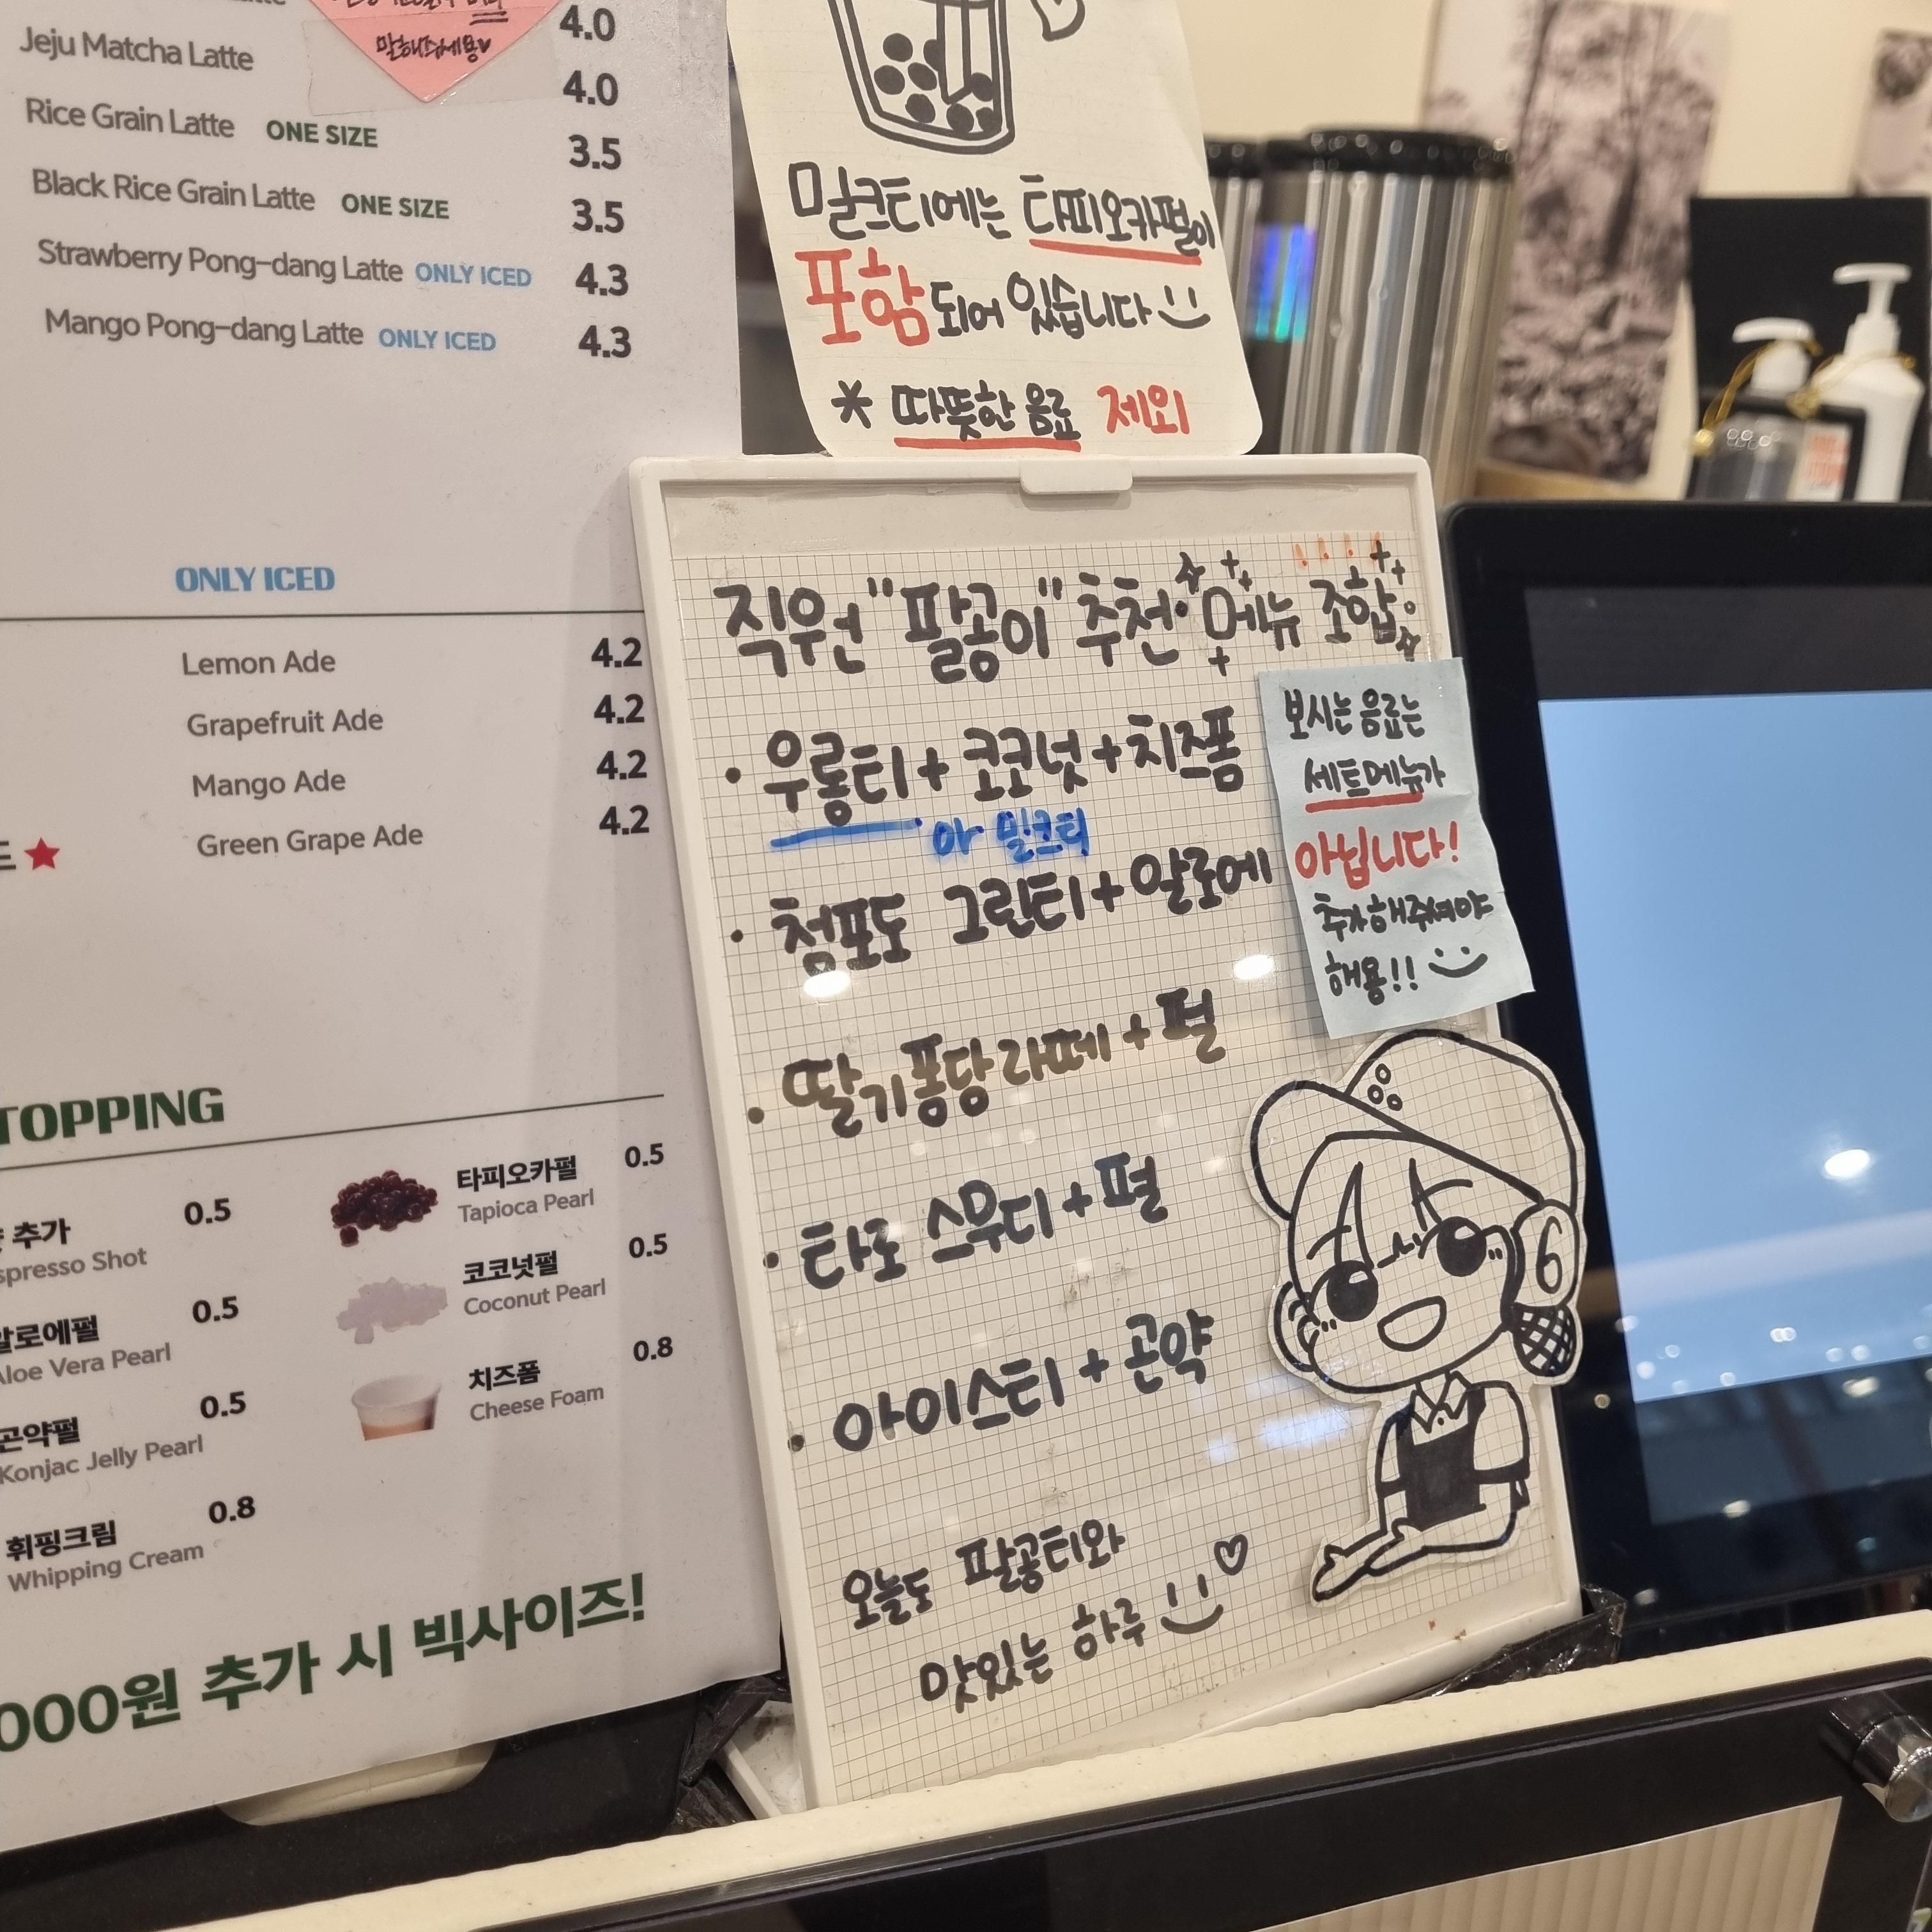 말해주세용♥
4.0
Jeju Matcha Latte 4.0
Rice Grain Latte ONE SIZE 3.5
Black Rice Grain Latte ONE SIZE 3.5
Strawberry Pong-dang Latte ONLY ICED 4.3
Mango Pong-dang Latte ONLY ICED 4.3
ONLY ICED
Lemon Ade 4.2
Grapefruit Ade 4.2
Mango Ade 4.2
Green Grape Ade 4.2
TOPPING
추가 0.5
spresso Shot
알로에펄 0.5
Aloe Vera Pearl
곤약펄 0.5
Konjac Jelly Pearl
휘핑크림 0.8
Whipping Cream
타피오카펄 0.5
Tapioca Pearl
코코넛펄 0.5
Coconut Pearl
치즈폼 0.8
Cheese Foam
000원 추가 시 빅사이즈!
밀크티에는 타피오카펄이
포함되어 있습니다
* 따뜻한 음료 제외
직원 "팔공이" 추천 메뉴 조합
• 우롱티 + 코코넛 + 치즈폼
아 밀크티
• 청포도 그린티 + 알로에
• 딸기퐁당라떼 + 펄
• 타로 스무디 + 펄
• 아이스티 + 곤약
오늘도 팔공티와
맛있는 하루
보시는 음료는
세트메뉴가
아닙니다!
추가해주셔야
해용!!
6